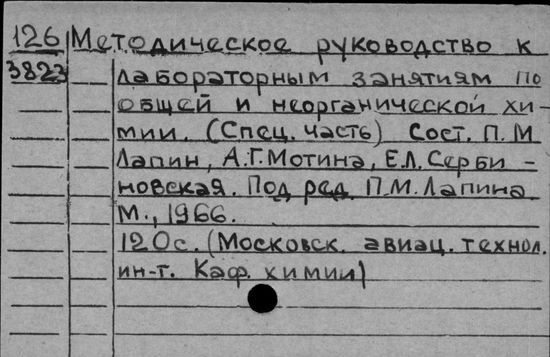 126 Методическое руководство к
3823 лабораторным занятиям по
общей и неорганической хи-
мии. (Спец. часть) Сост. П.М
Лапин, А.Г.Мотина, Е.Л.Серби-
новская. Под ред. П.М.Лапина
М., 1966.
120с. (Московск. авиац. технол.
ин-т. Каф. химии)